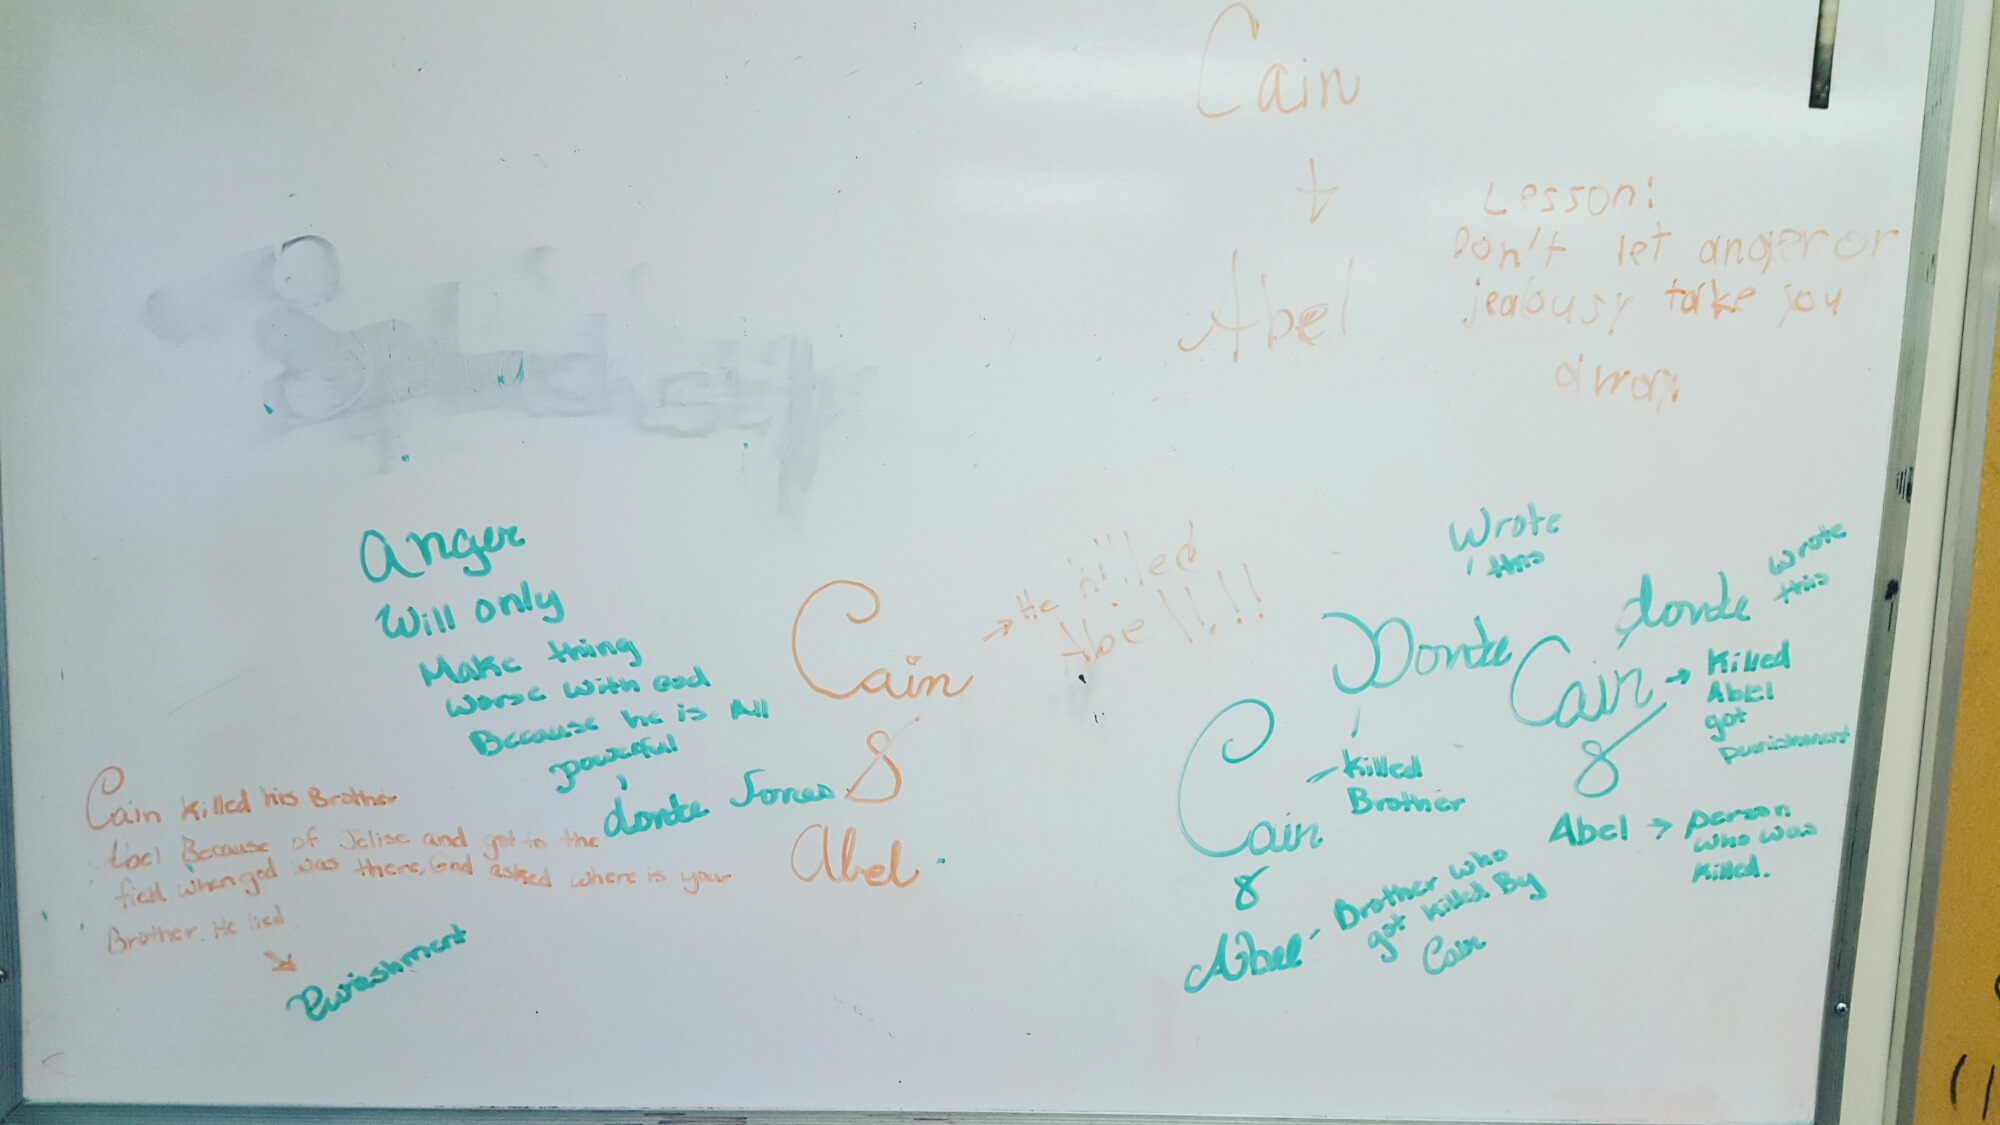 Cain
+
Abel
Lesson:
Don't let anger or
jealousy take you
away.
Anger
Will only
Make thing
worse with God
Because he is All
powerful
donte Jones
Cain
&
Abel
→ He killed
Abel!!.!!
Cain killed his Brother
Abel Because of Jelise and got to the
fied when god was there, God asked where is your
Brother. He lied
Punishment
Wrote
this
Donte
Cain
- killed
Brother
&
Abel - Brother who
got killed By
Cain
Wrote
this
donte
Cain → Killed
Abel
got
punishment
&
Abel → person
who was
killed.